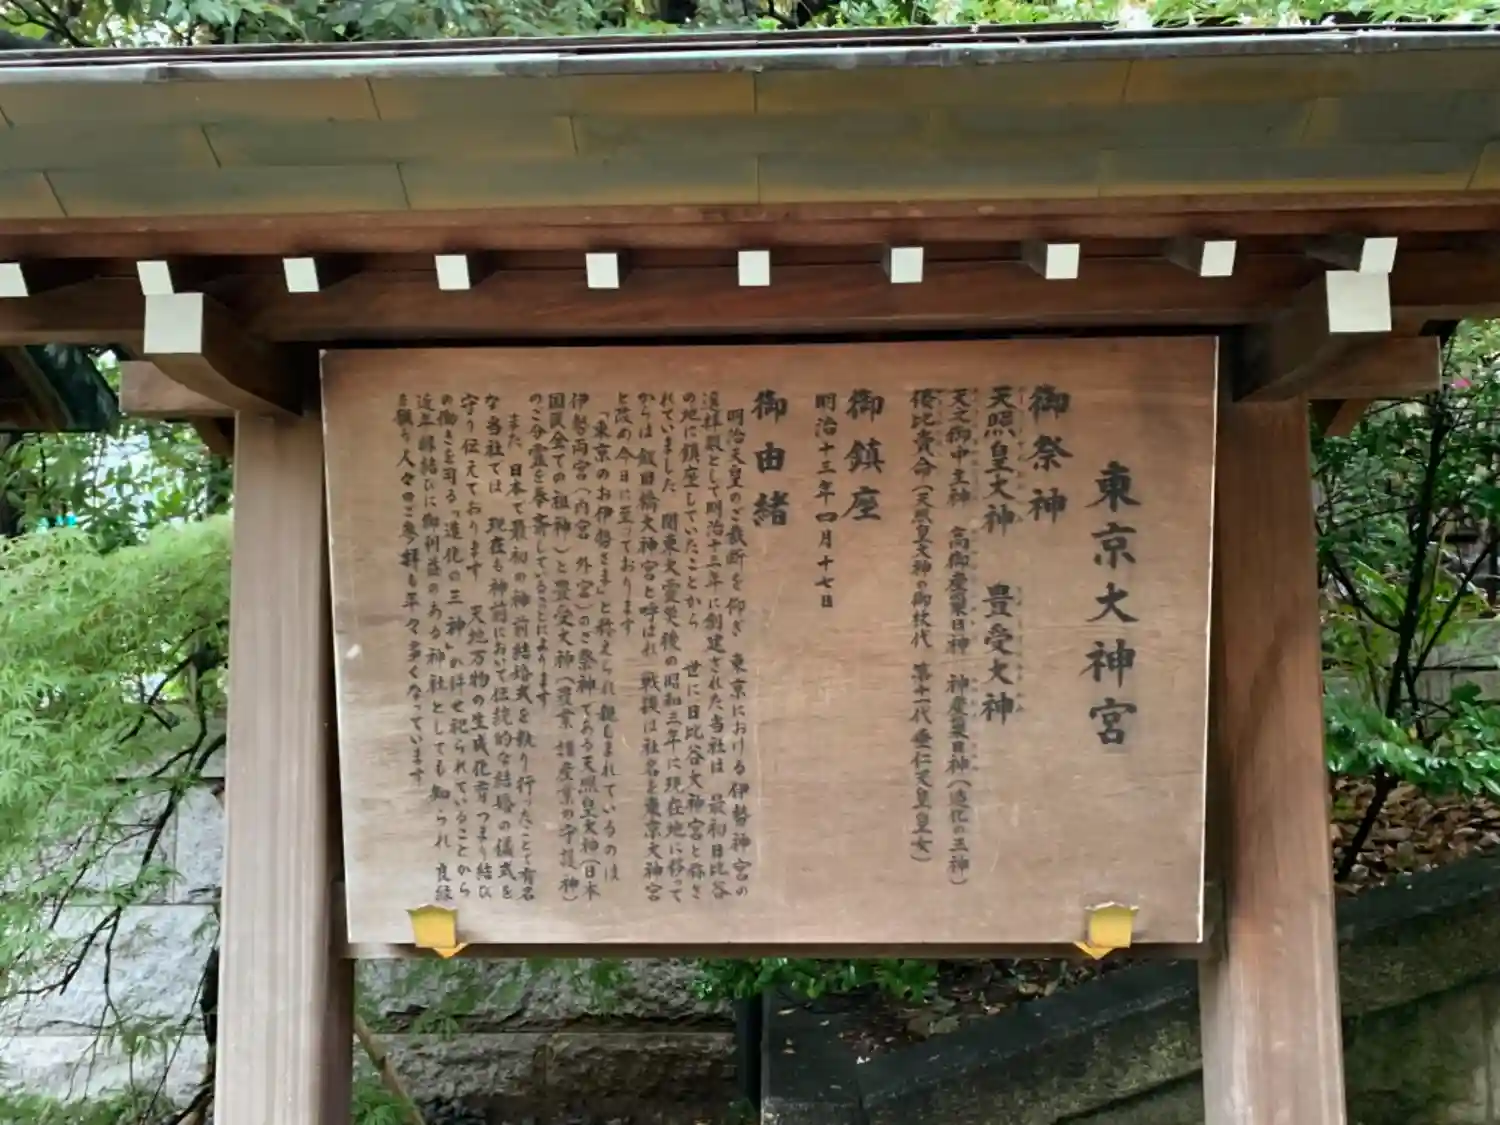 東京大神宮
御祭神
天照皇大神　豊受大神
天之御中主神　高御産巣日神　神産巣日神（造化の三神）
倭比賣命（天照皇大神の御杖代　第十一代垂仁天皇皇女）
御鎮座
明治十三年四月十七日
御由緒
明治天皇のご裁断を仰ぎ　東京における伊勢神宮の
遥拝殿として明治十三年に創建された当社は　最初日比谷
の地に鎮座していたことから　世に日比谷大神宮と称さ
れていました　関東大震災後の昭和三年に現在地に移って
からは飯田橋大神宮と呼ばれ　戦後は社名を東京大神宮
と改め今日に至っております
「東京のお伊勢さま」と称えられ親しまれているのは
伊勢両宮（内宮　外宮）のご祭神である天照皇大神（日本
国民全ての祖神）と豊受大神（農業　諸産業の守護神）
のご分霊を奉斎していることによります
また　日本で最初の神前結婚式を執り行ったことで有名
な当社では　現在も神前において伝統的な結婚の儀式を
守り伝えております　天地万物の生成化育つまり結び
の働きを司る"造化の三神"が併せ祀られていることから
近年縁結びに御利益のある神社としても知られ　良縁
を願う人々のご参拝も年々多くなっています